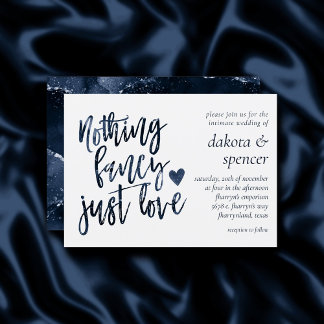 Nothing
fancy
just love
please join us for the
intimate wedding of
dakota &
spencer
saturday, 20th of november
at four in the afternoon
fharryn's emporium
3678 c. fharryn's way
fharrynland, texas
reception to follow